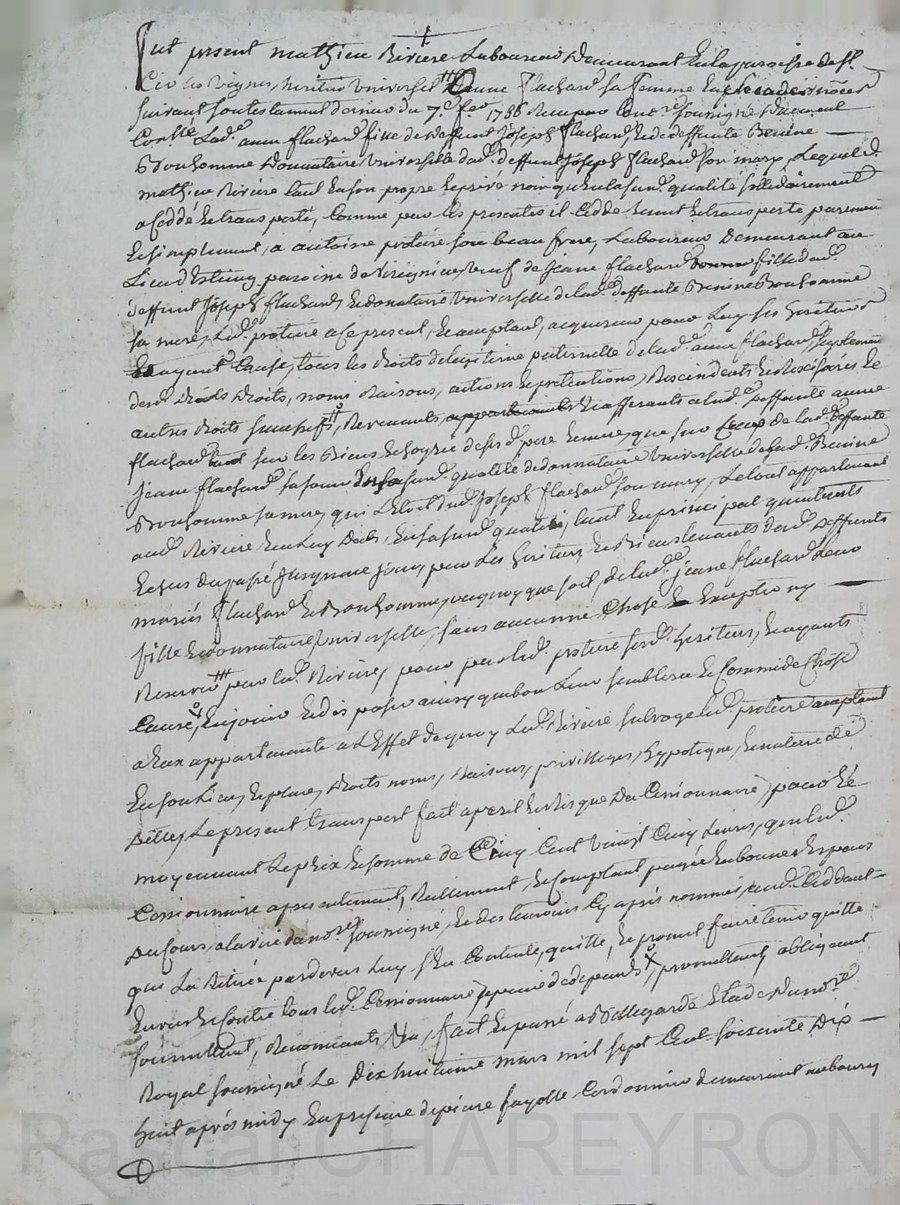 fut présent mathieu Riviere Laboureur Demeurant en la paroisse de St
Cir les vignes, heritier universel d'anne flachard sa femme
suivant son testament du 7e fer 1768 Reçu par le nore soussigné Duement
Conllé Lade anne flachard fille de deffunt Joseph flachard, et de deffunte Benine
Bonhomme Donnataire universelle dud. deffunt Joseph flachard son mary, Lequel d.
mathieu Riviere tant En son propre et privé nom qu'en la sud. qualité sollidairement
a Ceddé et transporté, Comme par Les presentes il Cedde Remet et transporte purement
Et simplement, a antoine protiere son beau frere, Laboureur Demeurant au
Lieu d' paroisse de Virigneux, veuf de Jeane flachard fille dud.
deffunt Joseph flachard, et donataire universelle de lad. deffunte Benine Bonhomme
sa mere, Led. protiere a Ce present, et acceptant, acquereur pour Luy ses heritiers
Et ayant Cause, tous les droits de legitime paternelle de lad. anne flachard, suplement
desd. Droits, noms Raisons, actions et pretentions, Rescindents et Rescisoires et
autres droits successifs, Revenants et afferants a lad. deffunte anne
flachard sur les Biens et hoyrie desd. pere et mere, que sur Ceux de lad. deffunte
Jeane flachard sa soeur sud. qualité de donnataire universelle de lad. Benine
Bonhomme sa mere, qui L'etoit dud. Joseph flachard son mary, Le tout appartenant
aud. Riviere En sa sud. qualité, tant En principal qu'interets
Echus du passé Jusqu'a ce jour, pour Les heritiers, et Biens tenants desd. deffunts
mariés flachard et Bonhomme, ou quoy que soit, de lad. Jeane flachard Leur
fille et donnataire universelle, sans aucune Chose En Excepter ny
Reserver pour led. Riviere, pour par led. protiere sesd. heritiers, et ayants
Cause, En jouir et disposer ainsy que bon Leur semblera Et Comme de Chose
a Eux appartenante a L'Effet de quoy Led. Riviere subroge led. protiere acceptant
En son Lieu, et place, Droits noms, Raisons, privilleges, hypoteque, et
Dettes, Le present transport fait a peril et Risque du Cessionnaire, pour Et
moyennant Le prix et somme de Cinq Cent vingt Cinq Livres, que led.
Cessionnaire a presentement, Reellement Et Comptant payée En bonnes Especes
Du Cours, a la vüe du nore soussigné, et des temoins Cy après nommés, aud. Ceddant
qui La Retirée par devers Luy s'En Contente, quitte, Et promet faire tenir quitte
Envers Et Contre tous led. Cessionnaire, a peine de depends, promettant obligeant
soumettant, Renonceants &a, fait Et passé a Bellegarde Etude du nore
Royal soussigné Le Dix huitieme mars mil sept Cent soixante Dix
huit après midy En presence de pierre fayolle Cordonnier demeurant au bourg
Pascal CHAREYRON